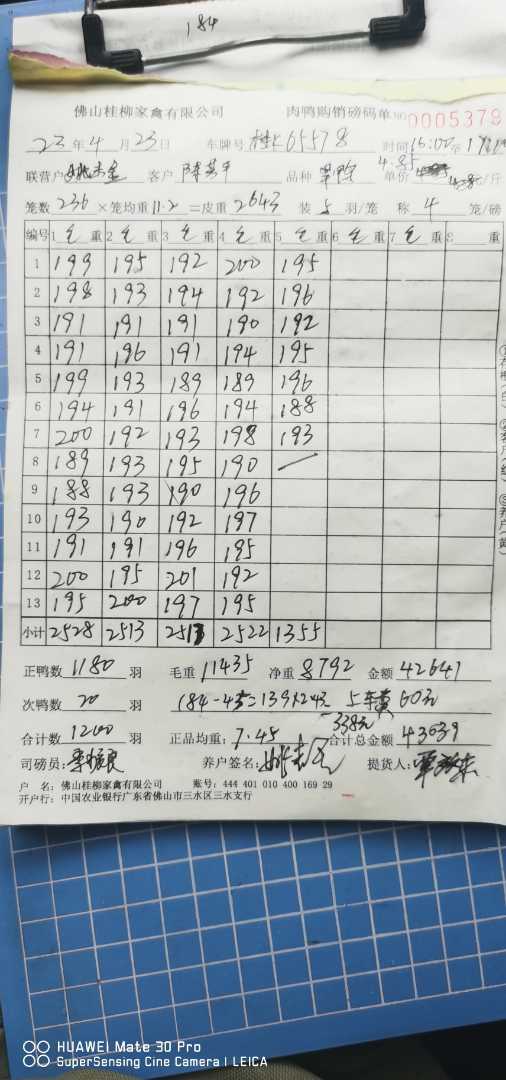 184
佛山桂柳家禽有限公司 肉鸭购销磅码单 NO 0005378
23年4月23日 车牌号 桂K65578 时间16:00至
联营户 客户 品种 单价 4.85 /斤
笼数 236 ×笼均重11.2 =皮重 2643 装 5 羽/笼 称 4 笼/磅
编号 1 毛 重 2 毛 重 3 毛 重 4 毛 重 5 毛 重 6 毛 重 7 毛 重 8 重
1 199 195 192 200 195
2 198 193 194 192 196
3 191 191 191 190 192
4 191 196 191 194 195
5 199 193 189 189 196
6 194 191 196 194 188
7 200 192 193 198 193
8 189 193 195 190 —
9 188 193 190 196
10 193 190 192 197
11 191 191 196 195
12 200 195 201 192
13 195 200 197 195
小计 2528 2513 2517 2522 1355
正鸭数 1180 羽 毛重 11435 净重 8792 金额 42641
次鸭数 20 羽 184-45=139×2.43 5 60元
338元
合计数 1200 羽 正品均重: 7.45 合计总金额 43039
司磅员: 养户签名: 提货人:
户 名: 佛山桂柳家禽有限公司 账号: 444 401 010 400 169 29
开户行: 中国农业银行广东省佛山市三水区三水支行
HUAWEI Mate 30 Pro
SuperSensing Cine Camera | LEICA